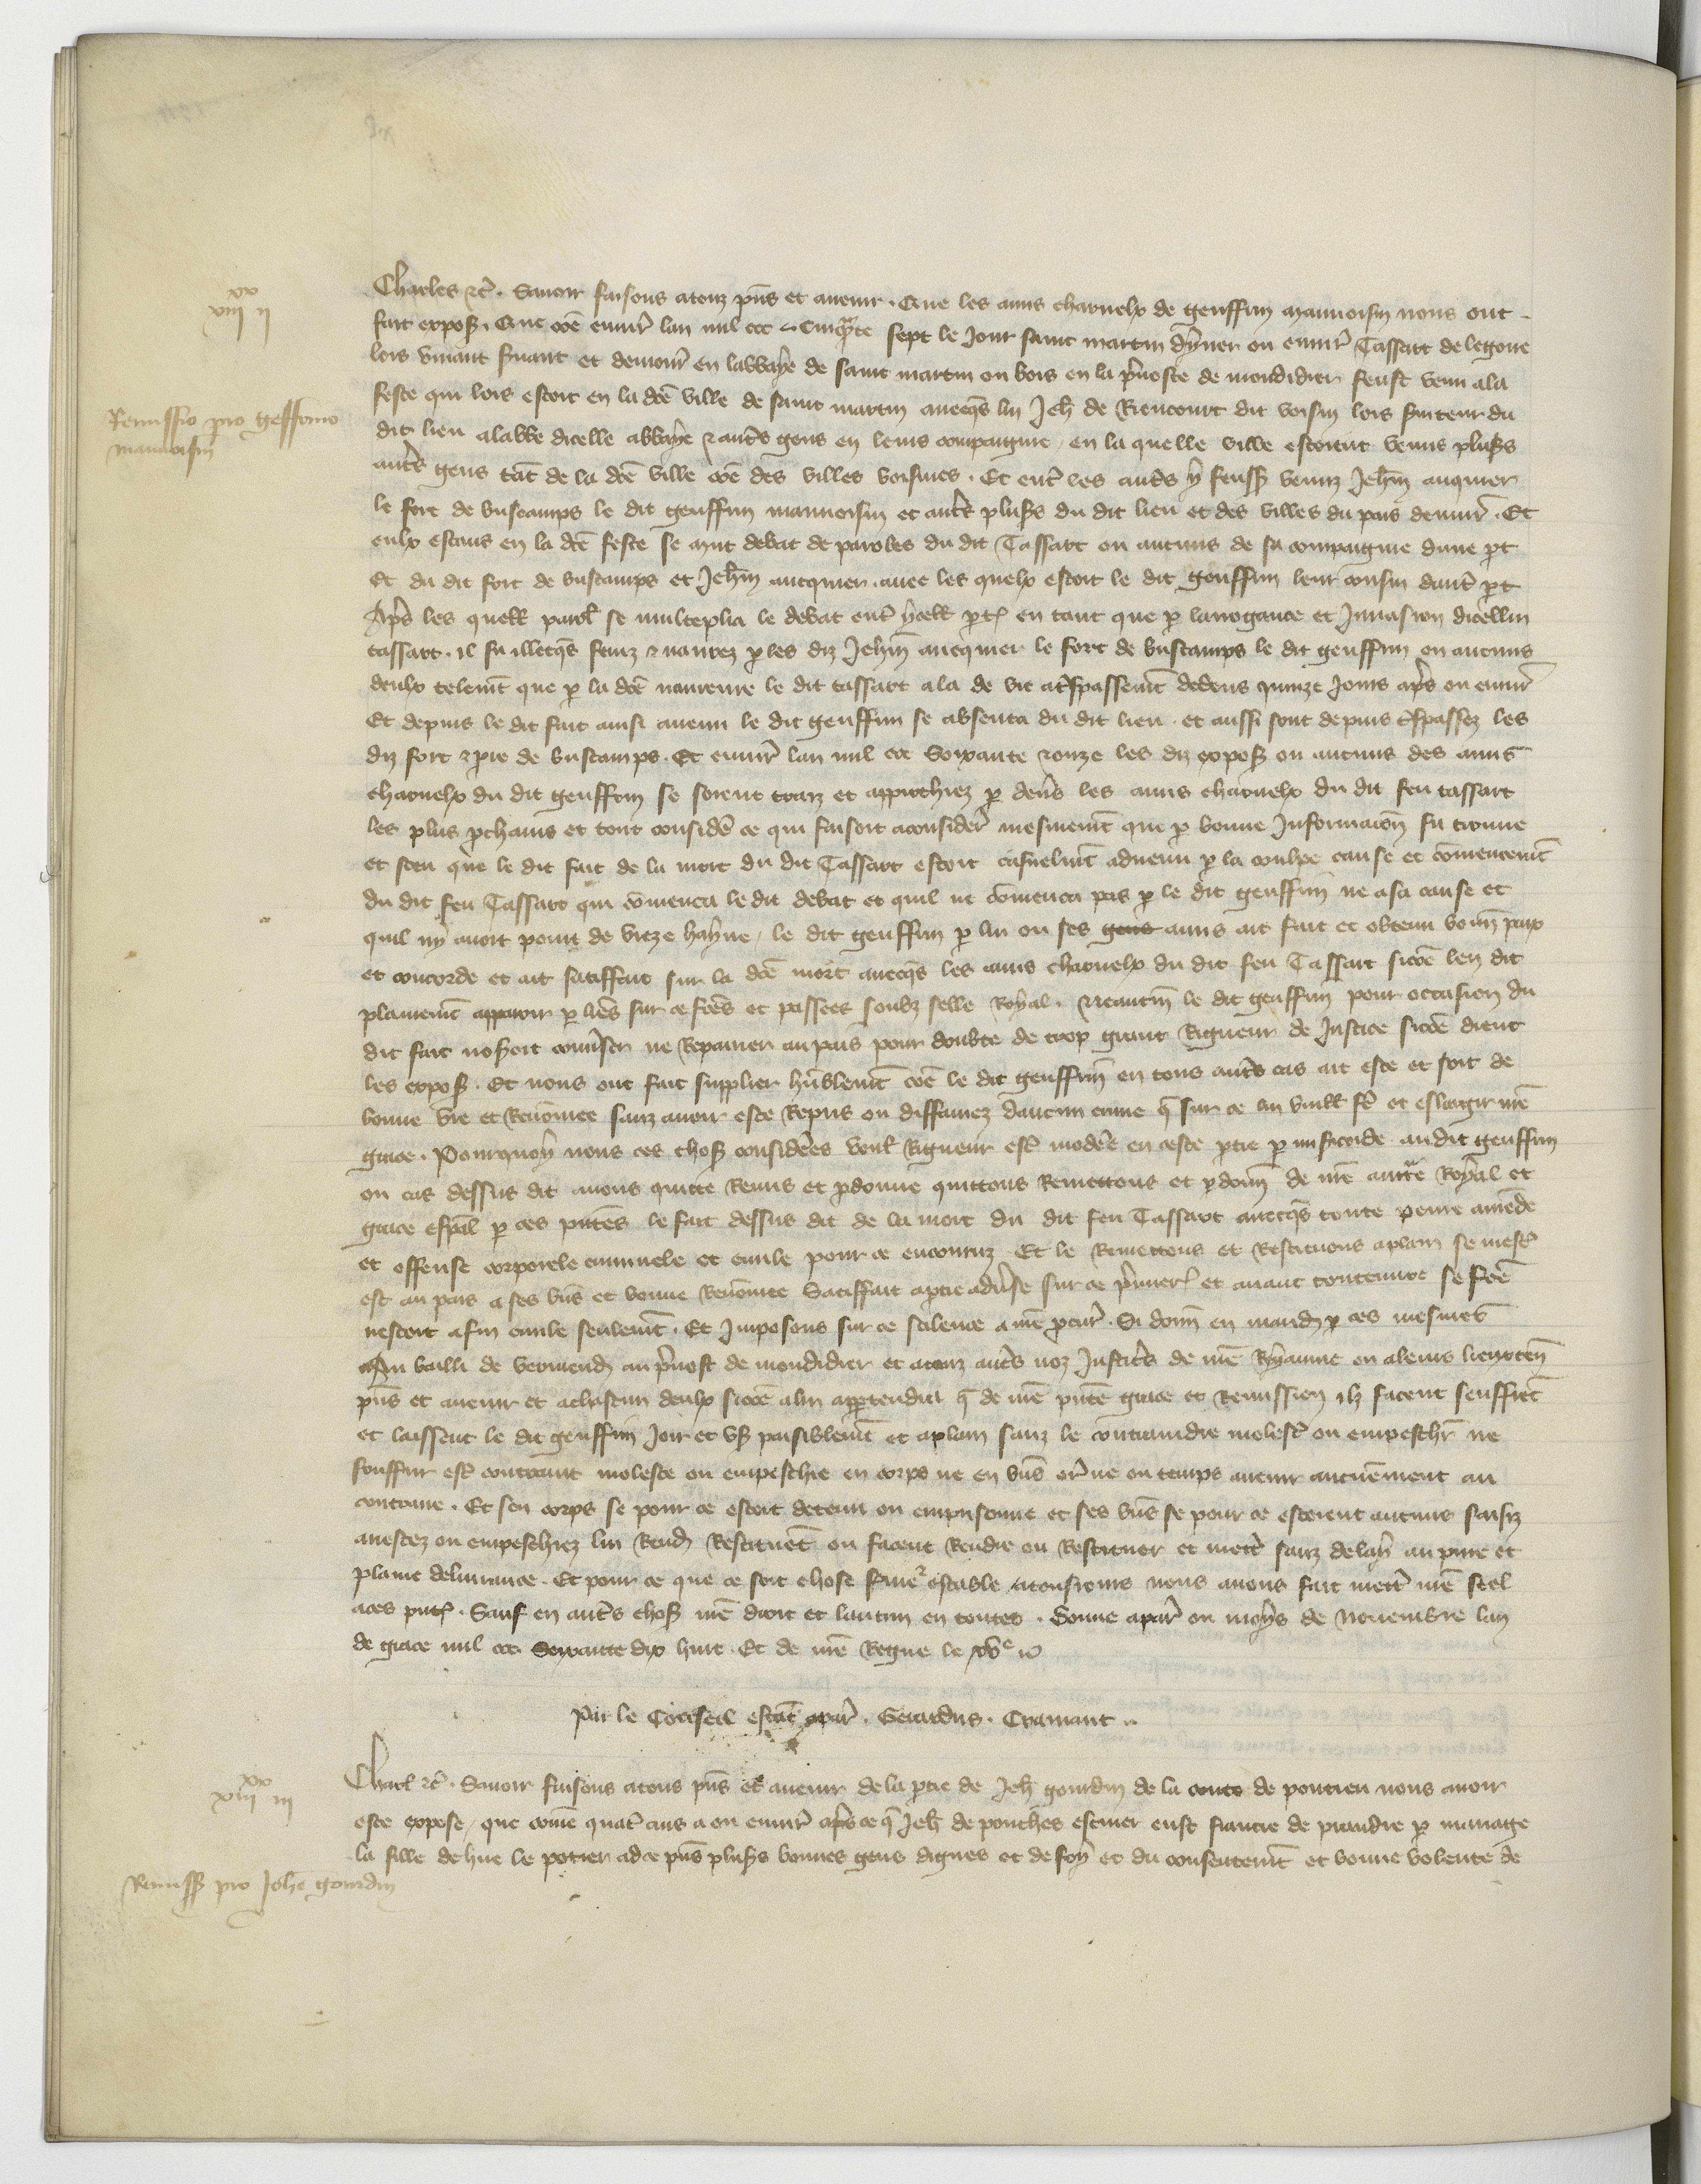 xx
viii ii
Remissio pro geffrino
mauvoisin
Charles etc̃. Savoir faisons a touz pñs et avenir. Que les amis charnelx de geuffrin mauvoisin nous ont
fait exposer. Que cõe environ lan mil ccc cinqte sept le jour saint martin dyver ou environ Tassart de legoue
lors vivant servant et demourant en labbaye de saint martin ou bois en la p̃voste de mondidier feust venu a la
feste qui lors estoit en la dce ville de saint martin avecqs lui Jeh de Riencourt dit voisin lors serviteur du
dit lieu a labbe dicelle abbaye et autres gens en leurs compaignie, en la quelle ville estoient venus pluss
autres gens tat de la dce ville cõe des villes voisines. Et entre les autres y feuss venuz Jehñ anquier
le fort de buscamps le dit geuffrin mauvoisin et autres pluss du dit lieu et des villes du pais denvir. Et
eulx estans en la dce feste se mut debat de paroles du dit Tassart ou aucuns de sa compaignie dune pt
Et du dit fort de buscamps et Jehñ anquier avec les quelx estoit le dit geuffrin leur cousin dautre pt
Après les quell parol se multeplia le debat entre ycell pties en tant que p larrogance et Invasion dicellui
tassart. il fu illecqs feruz et navrez p les diz Jehñ anquier le fort de buscamps le dit geuffrin ou aucuns
deulx telemt que p la dce navreure le dit tassart ala de vie a trespassemt dedens quinze jours apres ou envir
Et depuis le dit fait ainsi avenu le dit geuffrin se absenta du dit lieu et aussi sont depuis trespassez les
diz fort et pre de buscamps. Et environ lan mil ccc soixante et onze les diz exposans ou aucuns des amis
charnelx du dit geuffrin se soient traiz et approchiez p devers les amis charnelx du dit feu tassart
les plus prochains et tout consideré ce qui faisoit a considerer mesmemt que p bonne Informacõn fu trouve
et sceu que le dit fait de la mort du dit Tassart estoit casuelmt advenu p la coulpe cause et cõmencemt
du dit feu Tassart qui cõmenca le dit debat et quil ne cõmenca pas p le dit geuffrin ne a sa cause et
quil ny avoit point de vieze hayne, le dit geuffrin p lui ou ses gens amis ait fait et obtenu bonne paix
et concorde et ait satiffait sur la dce mort avecqs les amis charnelx du dit feu Tassart sicõe len dit
plainemt apparoir p lres sur ce fces et passees soubz seelle Royal. Neantm le dit geuffrin pour occasion du
dit fait noseroit converser ne Repairier au pais pour doubte de trop grant Rigueur de Justice sicõe dient
les exposans. Et nous ont fait supplier humblemt cõe le dit geuffrin en tous autres cas ait este et soit de
bonne vie et Renõmee sanz avoir este Repris ou diffamez daucun crime q sur ce lui vuill fere et eslargir nre
grace. Pourquoy nous ces choses considerees voulans Rigueur estre moderee en ceste ptie p misericorde au dit geuffrin
ou cas dessus dit avons quitte Remis et pdonne quittons Remettons et pdonñ de nre auctorite Royal et
grace especial p ces presentes le fait dessus dit de la mort du dit feu Tassart avecqs toute peine amende
et offense corporele criminele et civile pour ce encouruz Et le Remettons et Restituons a plain se mestier
est au pais a ses biens et bonne Renõmee Satiffait a ptie adverse sur ce premier et avant toute euvre se fce
nestoit a fin civile seulemt. Et Imposons sur ce scilence a nre procur. Si donñ en mand p ces mesmes
Au bailli de vermend au prevost de mondidier et a touz autres noz Justic de nre Royaume ou a leurs lieuxten
pñs et avenir et a chascun deulx sicõe a lui appartendra q de nre pñte grace et Remission ilz facent seuffret
et laissent le dit geuffrin Joir et user paisiblemt et a plain sanz le contraindre molester ou empeschier ne
souffrir estre contraint moleste ou empeschie en corps ne en biens ore ne ou temps avenir aucunement au
contraire. Et son corps se pour ce estoit detenu ou emprisonne et ses biens se pour ce estoient aucuns saisiz
arrestez ou empeschiez lui Rend Restituet ou facent Rendre ou Restituer et mettre sanz delay au pure et
plaine delivrance. Et pour ce que ce soit chose ferme et estable a tousiours nous avons fait mettre nre seel
a ces pntes. Sauf en autres choses nre droit et lautruy en toutes. Donne a par ou moys de Novembre lan
de grace mil ccc Soixante dix huit. Et de nre Regne le xve
Par le Conseil estãt a par. Gerardus. Cramaut.
xx
viii iii
Remiss pro Johe gourdin
Charl etc̃. Savoir faisons a tous pñs et avenir de la ptie de Jeh gourdin de la conte de pontieu nous avoir
este expose, que cõme quatre ans a ou environ apres ce q Jeh de ponches escuier eust fiancie de prandre p mariage
la fille de hue le potier ad ce pñs pluss bonnes gens dignes et de foy et du consentemt et bonne volente de